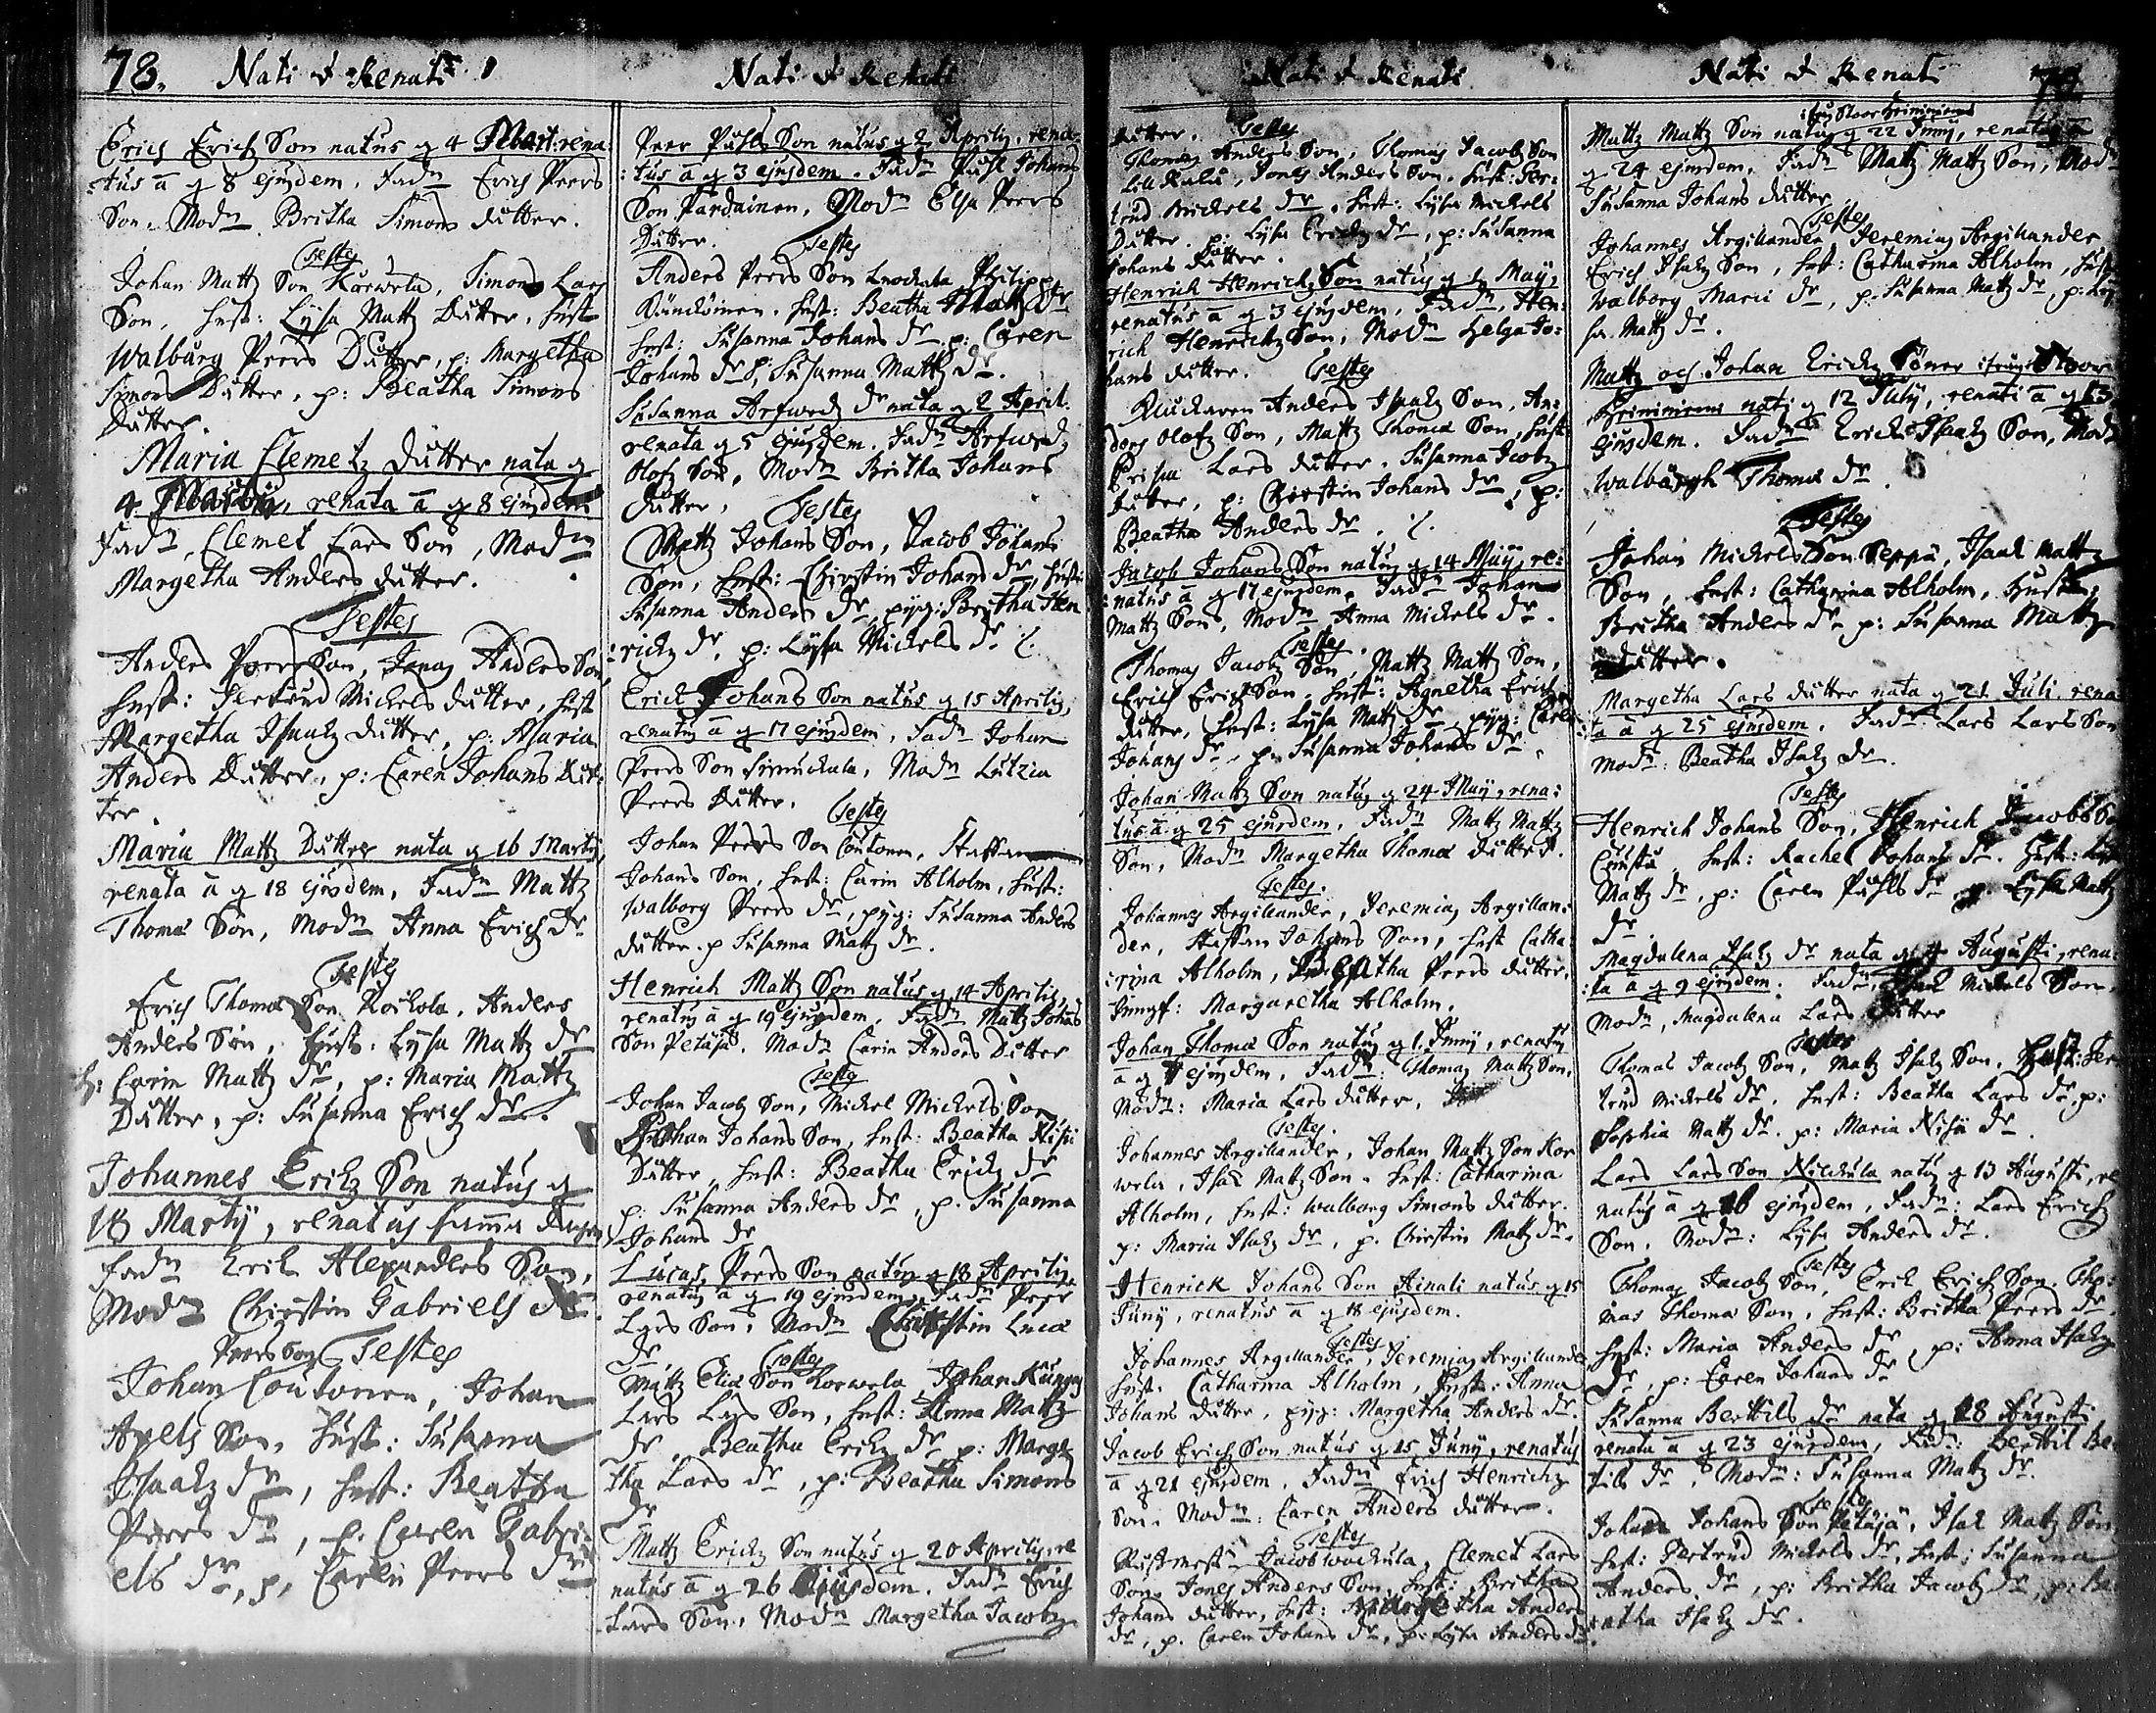 78. Nati & Renati
Erich Erich Son natus g 4 Mart: rena
:tus ā g 8 ejusdem. Fadn Erich Peers
Son. Modn Britha Simons dutter.
Testes
Johan Mattz Son Korwela, Simon Lars
Son, Hust: Lysa Mattz Dutter, Hust
Walburg Peers Dutter, p: Margetha
Simons Dutter, p: Beatha Simons
Dutter.
Maria Clemetz dutter nata g
4 Martij, renata ā g 8 ejusdem
Fadn, Clemet Lars Son, Modn
Margetha Anders dutter.
Testes
Anders Peers Son, Jonas Anders Son
Hust: Gertrud Michels dutter, Hust
Margetha Isaatz dutter, p: Maria
Anders Dutter, p: Caren Johans Dut:
ter.
Maria Mattz Dutter nata g 16 Martij,
renata ā g 18 ejusdem, Fadn Mattz
Thomæ Son, Modn Anna Erich dr
Testes
Erich Thomæ Son Kockola, Anders
Anders Son, Hust: Lysa Mattz dr
h: Carin Mattz dr, p: Maria Mattz
Dutter, p: Susanna Erich dr.
Johannes Erichz Son natus g
18 Martij, renatus samma dagen
Fadn Erik Alexanders Son,
Modn Chirstin Gabriels dr.
Peers Son Testes
Johan Coutonen, Johan
Axels Son, Hust: Susanna
Isaatz dr, Hust: Beatha
Peers dr, p. Caren Gabri:
els dr, p, Caren Peers dr
Nati & Renati
Peer Påhls Son natus g 2 Aprilis, rena
:tus ā g 3 ejusdem. Fadn Påhl Johans
Son Pardainen, Modn Elsa Peers
Dutter.
Testes
Anders Peers Son, Philippe
Hust: Beatha Mattz dr
Hust: Susanna Johans dr p: Caren
Johans dr p: Susanna Mattz dr.
Susanna Arfwedz dr nata g 2 April.
renata g 5 ejusdem. Fadn Arfwedz
Olofz Son, Modn Britha Johans
dutter,
Testes
Mattz Johans Son, Jacob Johans
Son, Hust: Chirstin Johans dr, Hust:
Susanna Anders dr, pyg: Britha Hen
:richz dr, p: Lysa Michels dr.
Erick Johans Son natus g 15 Aprilis,
renatus ā g 17 ejusdem, Fadn Johan
Peers Son Simuckala, Modn Lutzia
Peers Dutter.
Testes
Johan Peers Son Coutonen, Staffan
Johans Son, Hust: Carin Alholm, Hust:
Walborg Peers dr, pyg: Susanna Anders
dutter. p Susanna Mattz dr.
Henrich Mattz Son natus g 14 Aprilis,
renatus ā g 19 ejusdem, Fadn Mattz Johans
Son Petäjä. Modn Carin Anders Dutter
Testes
Johan Jacobz Son, Michel Michels Son,
Johan Johans Son, Hust: Beatha
Dutter, Hust: Beatha Erichz dr
p: Susanna Anders dr, p. Susanna
Johans dr
Lucas Peers Son natus g 18 Aprilis,
renatus ā g 19 ejusdem, Fadn Peer
Lars Son, Modn Chirstin Lucæ
dr
Testes
Mattz Eliæ Son Korwela, Johan
Lars Lars Son, Hust: Anna Mattz
dr, Beatha Erichz dr p: Marge
tha Lars dr, p: Beatha Simons
dr
Mattz Erichz Son natus g 20 Aprilis, re
natus ā g 26 Ejusdem. Fadn Erich
Lars Son, Modn Margetha Jacobz
Nati & Renati
dutter.
Testes
Thomas Anders Son, Thomas Jacobz Son
Jonas Anders Son. Hust: Ger:
trud Michels dr, Hust: Lysa Michels
Dutter. p: Lysa Erichz dr, p: Susanna
Johans dutter.
Henrich Henrichz Son natus g 1 Maij,
renatus ā g 3 ejusdem, Fadn, Hen:
rich Henrichz Son, Modn Helga Jo:
hans dutter.
Testes
Anders Isaatz Son, An:
ders Olofz Son, Mattz Thomæ Son, Hust:
Lars dutter. Susanna Jacobz
dutter, p: Chirstin Johans dr, p:
Beatha Anders dr.
Jacob Johans Son natus g 14 Maij, re:
:natus ā g 17 ejusdem, Fadn Johan
Mattz Son, Modn Anna Michels dr.
Testes
Thomas Jacobz Son, Mattz Mattz Son,
Erich Erichz Son, Hust: Agnetha Erichz
dutter, Hust: Lysa Mattz dr, pyg: Caren
Johans dr, p. Susanna Johans dr.
Johan Mattz Son natus g 24 Maij, rena:
tus ā g 25 ejusdem, Fadn Mattz Mattz
Son, Modn Margetha Thomæ dutter.
Testes.
Johannes Argillander, Jeremias Argillan:
der, Staffan Johans Son, Hust Catha:
:rina Alholm, Peers dutter,
Jungf: Margaretha Alholm.
Johan Thomæ Son natus g 1. Junij, renatus
ā g ejusdem, Fadn: Thomas Mattz Son.
Modn: Maria Lars dutter.
Testes.
Johannes Argillander, Johan Mattz Son Kor
wela, Isak Mattz Son. Hust: Catharina
Alholm, Hust: Walborg Simons dutter.
p: Maria Isakz dr, p. Chirstin Mattz dr.
Henrick Johans Son Ainali natus g 15
Junij, renatus ā g 18 ejusdem.
Testes
Johannes Argillander, Jeremias Argillander
Hust. Catharina Alholm, Hust: Anna
Johans dutter, pyg: Margetha Anders dr.
Jacob Erich Son natus g 15 Junij, renatus
ā g 21 ejusdem. Fadn Erich Henrichz
Son. Modn: Caren Anders dutter.
Testes
Jacob Wackula, Clemet Lars
Son. Jones Anders Son, Hust: Britha
Johans dutter, Hust: Margetha Anders
dr, p. Caren Johans dr, p: Lysa Anders dr
Nati & Renati
Mattz Mattz Son natus g 22 Junij, renatus ā
g 24 ejusdem. Fadn Mattz Mattz Son, Modn
Susanna Johans dutter
Testes
Johannes Argillander, Jeremias Argillander
Erich Isakz Son, Hust: Catharina Alholm, Hust
Walborg Marci dr, p: Susanna Mattz dr, p: Ly
sa Mattz dr.
Mattz och Johan Erichz Söner
nati g 12 Julij, renati ā g 13
ejusdem. Fadn Erich Isakz Son, Modn
Walborgh Thomæ dr.
Testes
Johan Michels Son Seppä, Isaak Mattz
Son, Hust: Catharina Alholm, Hust:
Britha Anders dr p: Susanna Mattz
dutter.
Margetha Lars dutter nata g 21. Juli. rena
ta ā g 25 ejusdem. Fadn Lars Lars Son
Modn: Beatha Isakz dr.
Testes
Henrich Johans Son, Henrich Jacobs Son
Hust: Rachel Johans dr. Hust: Lysa
Mattz dr, p: Caren Påhls dr, p: Lysa Mattz
dr.
Magdalena Isakz dr nata g 4 Augusti, rena:
:ta ā g 9 ejusdem. Fadn, Isak Michels Son,
Modn, Magdalena Lars dutter
Testes
Thomas Jacobz Son, Mattz Isakz Son, Hust: Ger
trud Michels dr. Hust: Beatha Lars dr, p:
Sophia Mattz dr. p: Maria dr.
Lars Lars Son natus g 13 Augusti, re
natus ā g 16 ejusdem, Fadn: Lars Erichz
Son. Modn: Lysa Anders dr.
Testes
Thomas Jacobz Son, Erik Erichz Son. Tho:
mas Thomæ Son, Hust: Britha Peers dr.
Hust: Maria Anders dr, p: Anna Isakz
dr, p: Caren Johans dr
Susanna Berttils dr nata g 18 Augusti
renata ā g 23 ejusdem, Fadn: Berttil Be:
tils dr, Modn: Susanna Mattz dr.
Testes
Johan Johans Son Petäjä, Isak Mattz Son,
Hust: Gertrud Michels dr, Hust: Susanna
Anders dr, p: Britha Jacobz dr, p: Be:
atha Isakz dr.